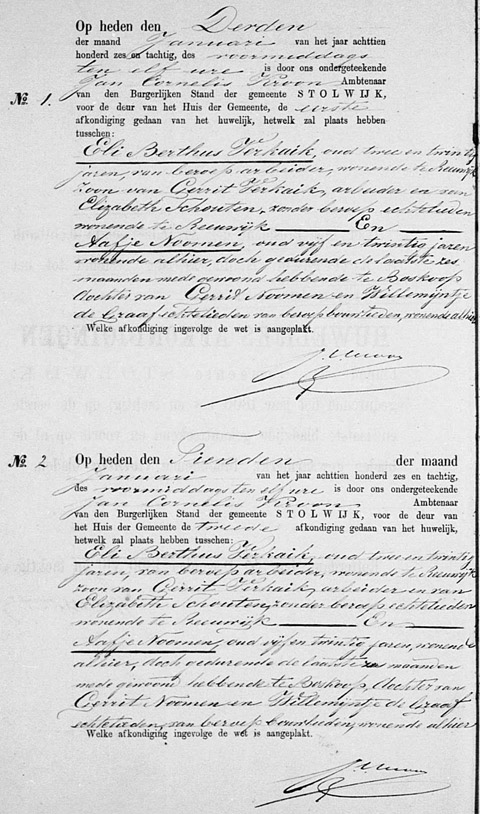 Op heden den Derden
der maand Januari van het jaar achttien
honderd zes en tachtig, des voormiddags
ten elf ure is door ons ondergeteekende
Jan Cornelis Ambtenaar
van den Burgerlijken Stand der gemeente STOLWIJK,
№ 1. voor de deur van het Huis der Gemeente, de eerste
afkondiging gedaan van het huwelijk, hetwelk zal plaats hebben
tusschen:
Eli Berthus Verkaik, oud twee en twintig
jaren, van beroep arbeider, wonende te Reeuwijk
zoon van Gerrit Verkaik, arbeider en van
Elizabeth Schouten, zonder beroep echtelieden
wonende te Reeuwijk En
Aafje Noomen, oud vijf en twintig jaren
wonende alhier, doch gedurende de laatste zes
maanden mede gewoond hebbende te Boskoop
dochter van Gerrit Noomen en Willemijntje
de Graaf echtelieden van beroep bouwlieden, wonende alhier
Welke afkondiging ingevolge de wet is aangeplakt.
№ 2 Op heden den Tienden der maand
Januari van het jaar achttien honderd zes en tachtig,
des voormiddags ten elf ure is door ons ondergeteekende
Jan Cornelis Ambtenaar
van den Burgerlijken Stand der gemeente STOLWIJK, voor de deur van
het Huis der Gemeente de tweede afkondiging gedaan van het huwelijk,
hetwelk zal plaats hebben tusschen:
Eli Berthus Verkaik, oud twee en twintig
jaren, van beroep arbeider, wonende te Reeuwijk
zoon van Gerrit Verkaik, arbeider en van
Elizabeth Schouten, zonder beroep echtelieden
wonende te Reeuwijk En
Aafje Noomen, oud vijf en twintig jaren, wonende
alhier, doch gedurende de laatste zes maanden
mede gewoond hebbende te Boskoop, dochter van
Gerrit Noomen en Willemijntje de Graaf
echtelieden, van beroep bouwlieden, wonende alhier
Welke afkondiging ingevolge de wet is aangeplakt.